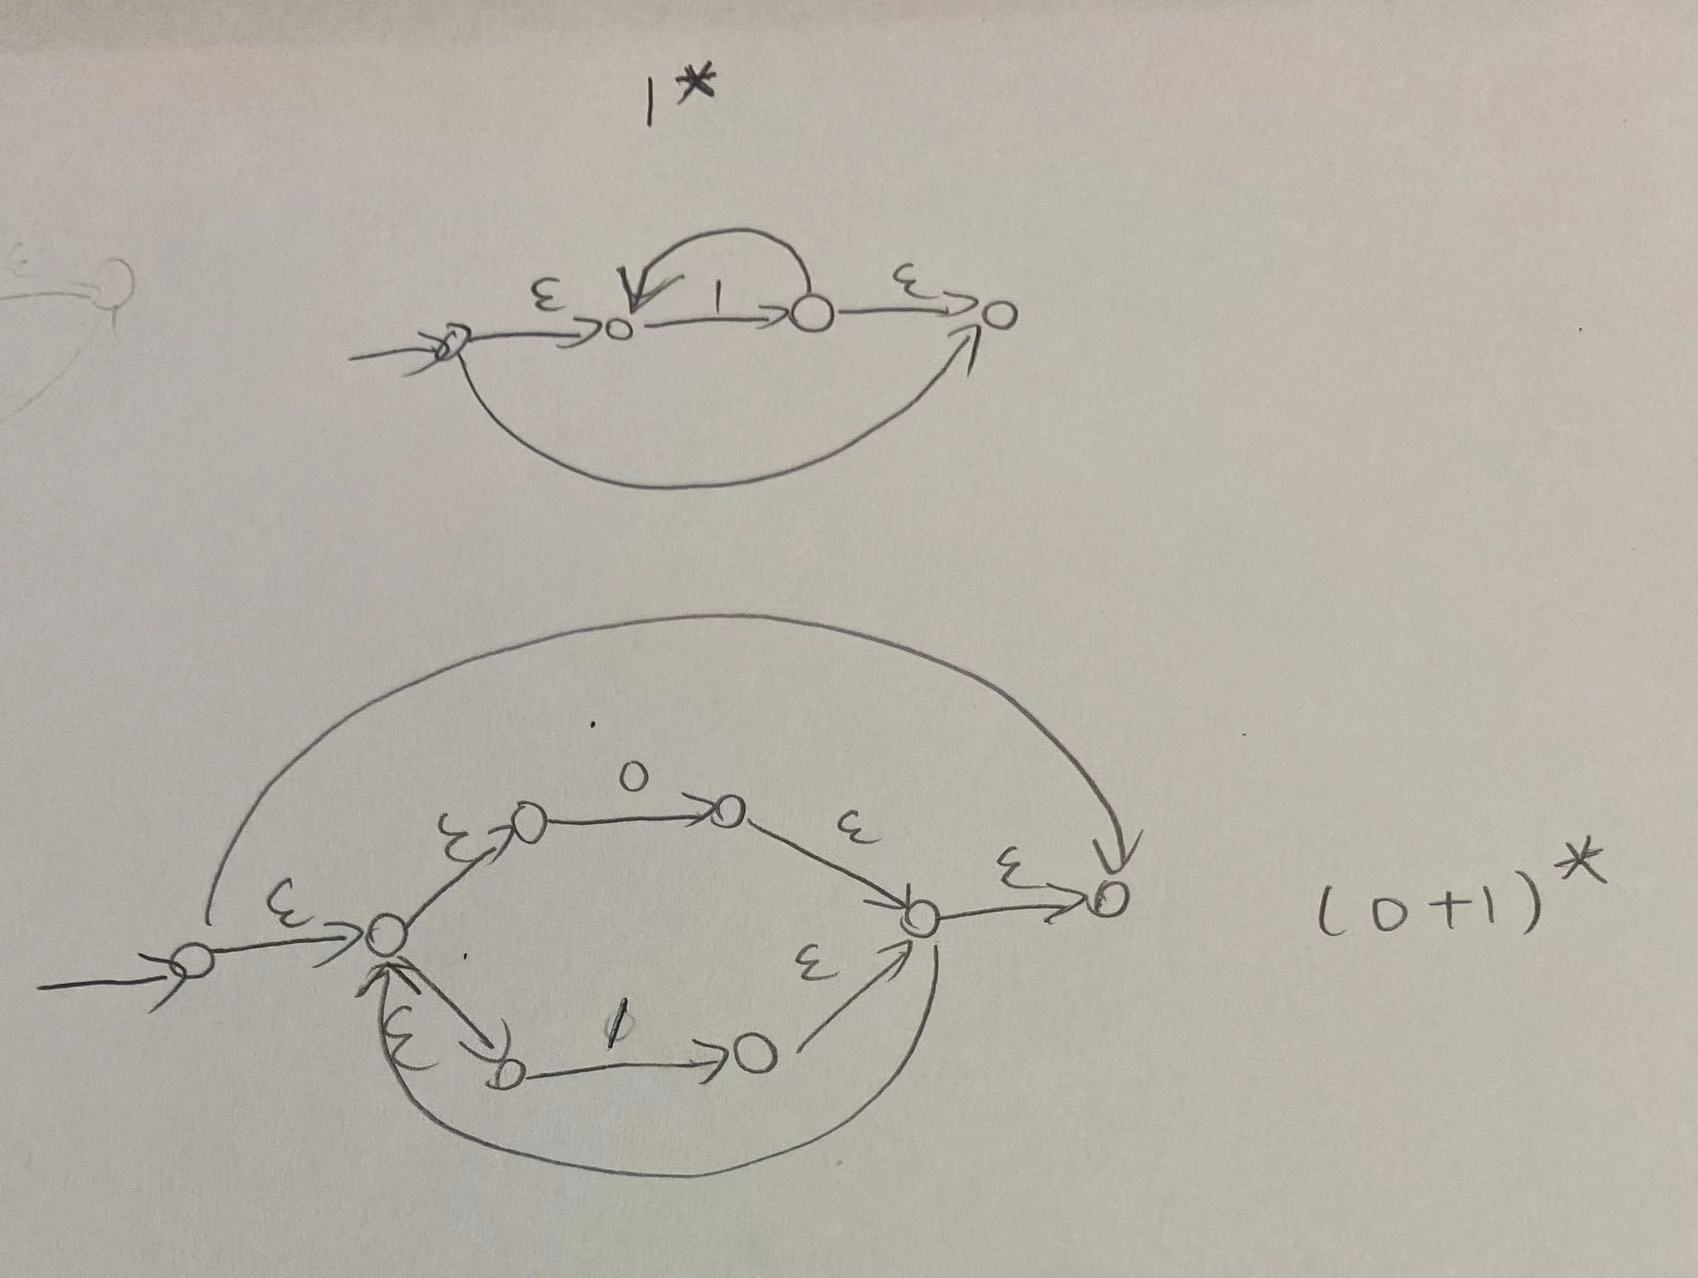 1*
ε
ε 1 ε
0
ε ε
ε ε (0+1)*
ε
ε 1